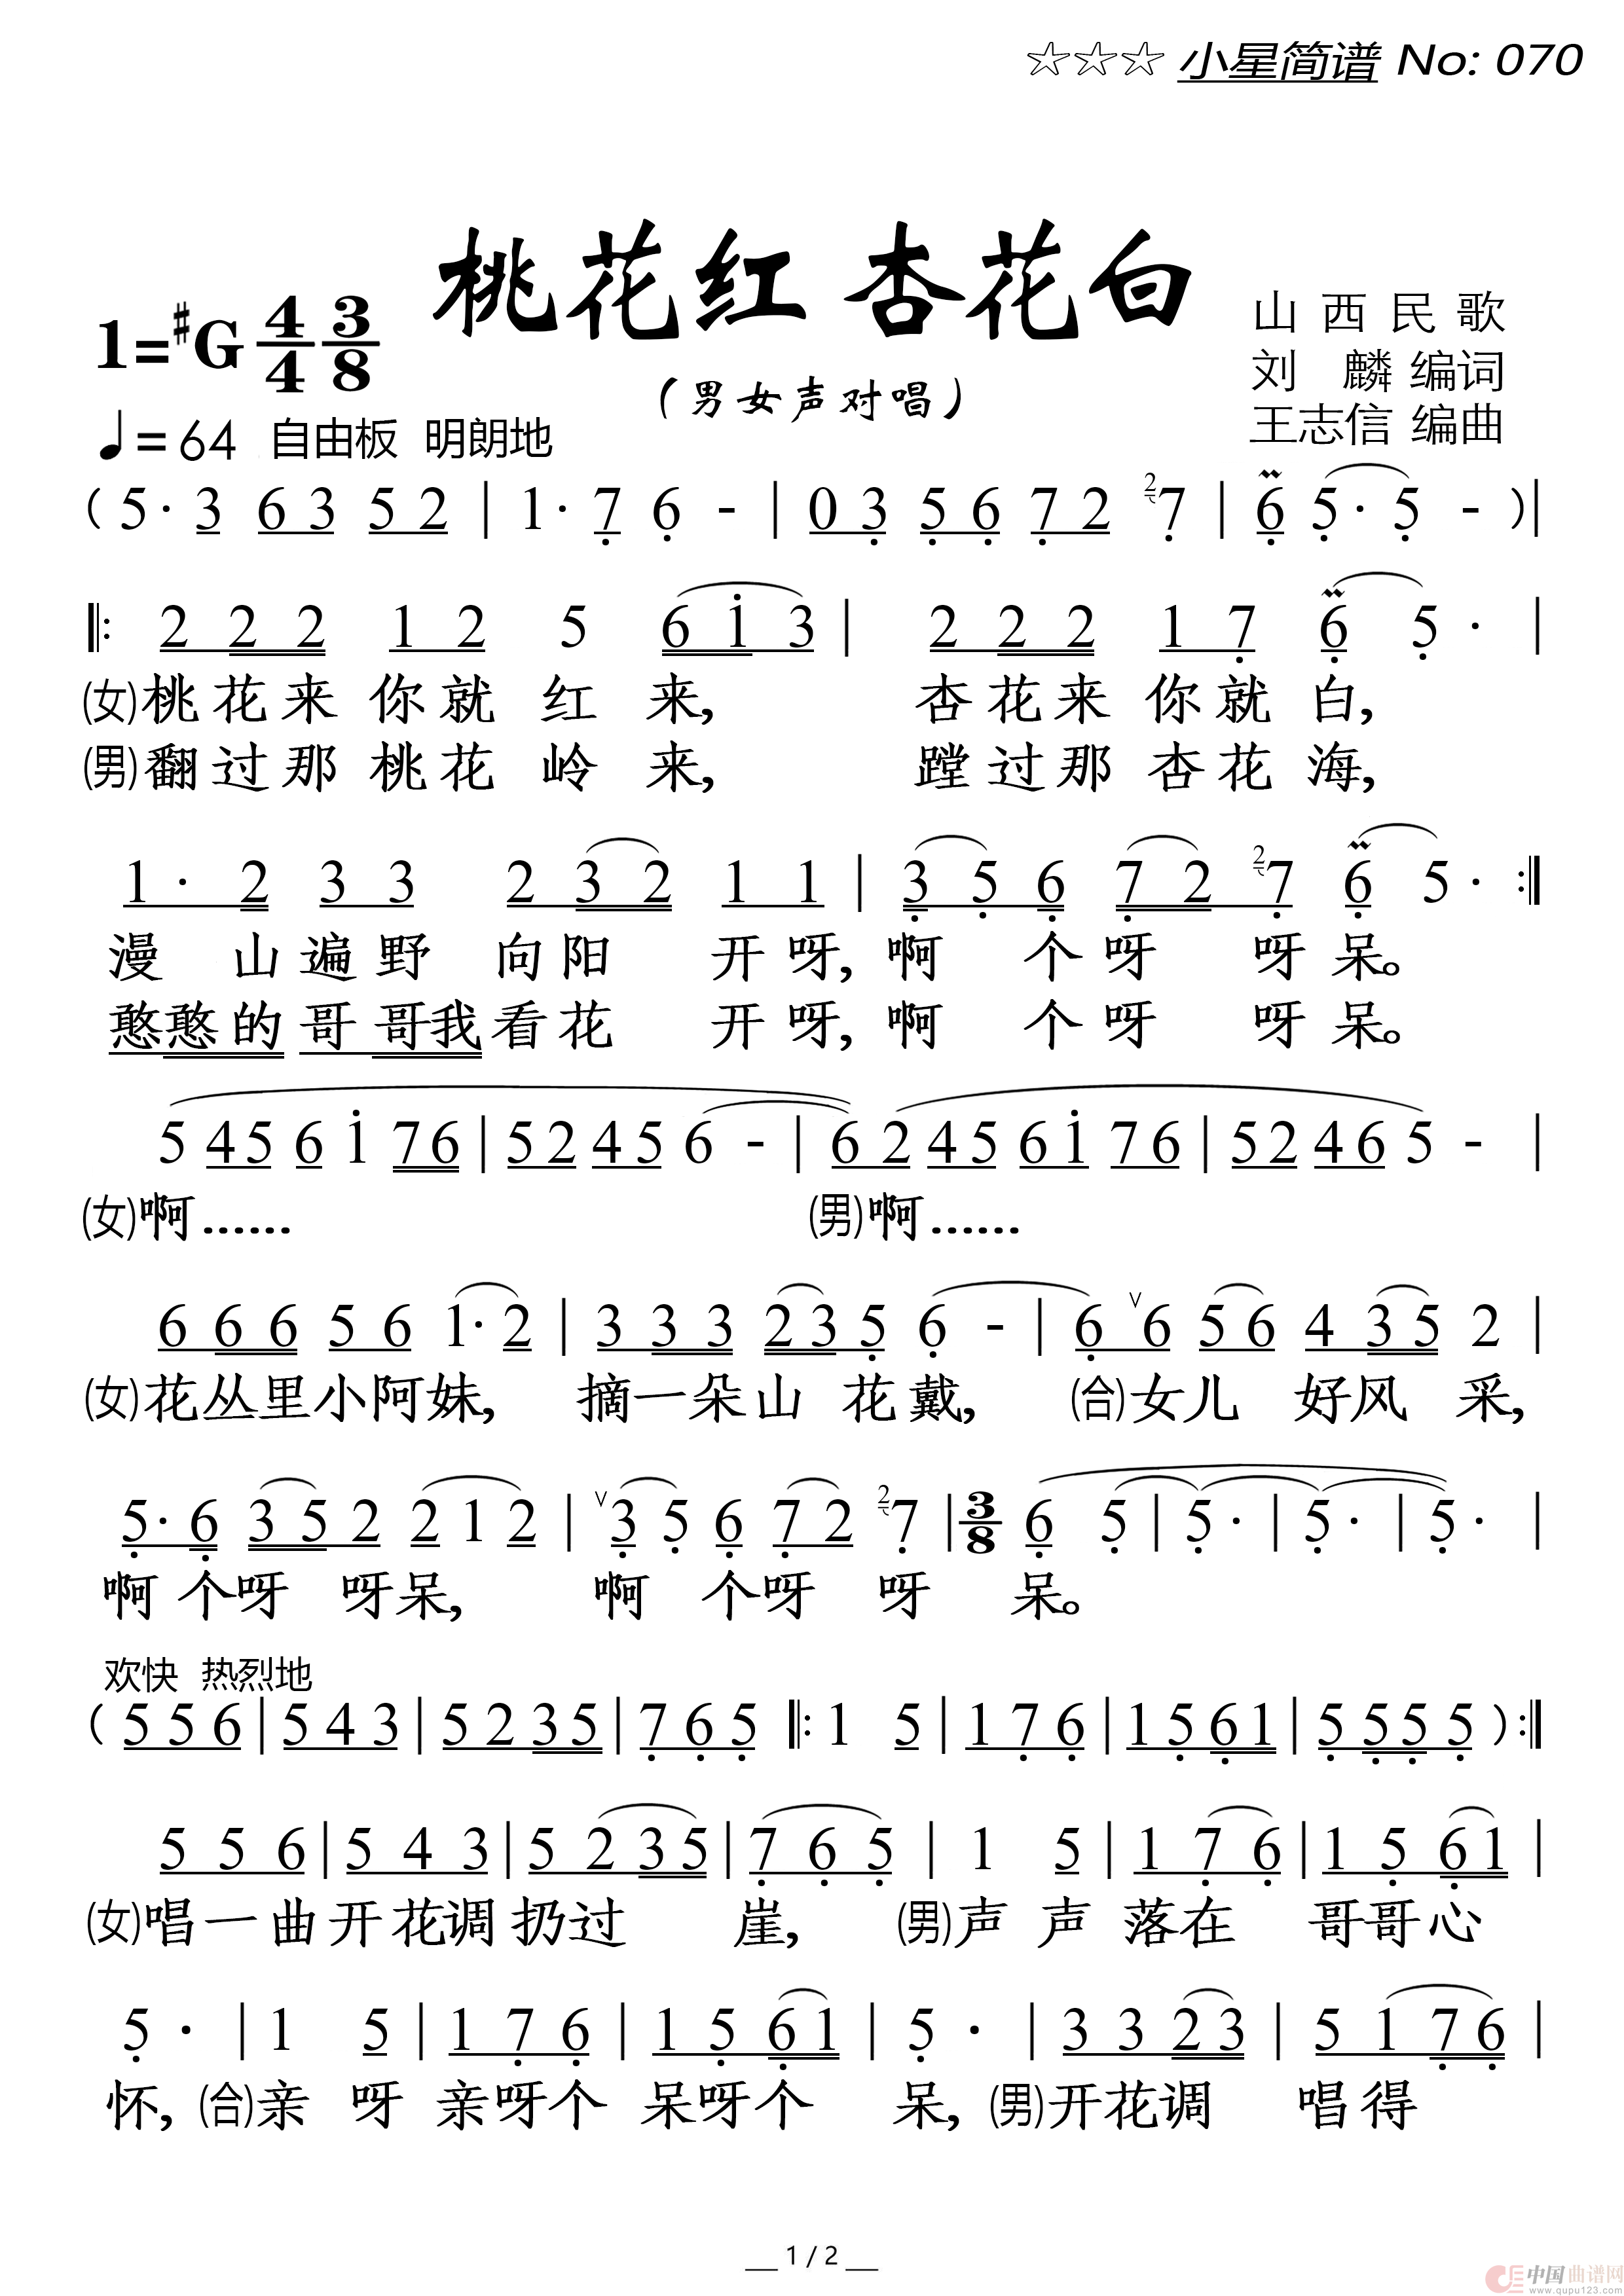 ☆☆☆ 小星简谱 No: 070
桃花红 杏花白
1=♯G 4/4 3/8
山西民歌
刘 麟 编词
(男女声对唱)
王志信 编曲
♩=64 自由板 明朗地
( 5· 3 6 3 5 2 | 1· 7 6 - | 0 3 5 6 7 2 2 7 | 6 5· 5 - ) |
‖: 2 2 2 1 2 5 6 1 3 | 2 2 2 1 7 6 5 · |
(女)桃花来你就红来, 杏花来你就白,
(男)翻过那桃花岭来, 蹚过那杏花海,
1 · 2 3 3 2 3 2 1 1 | 3 5 6 7 2 2 7 6 5 · :‖
漫山遍野向阳开呀,啊个呀呀呆。
憨憨的哥哥我看花开呀,啊个呀呀呆。
5 4 5 6 1 7 6 | 5 2 4 5 6 - | 6 2 4 5 6 1 7 6 | 5 2 4 6 5 - |
(女)啊…… (男)啊……
6 6 6 5 6 1· 2 | 3 3 3 2 3 5 6 - | 6 ∨ 6 5 6 4 3 5 2 |
(女)花丛里小阿妹, 摘一朵山花戴, (合)女儿好风采,
5· 6 3 5 2 2 1 2 | ∨ 3 5 6 7 2 2 7 | 3/8 6 5 | 5 · | 5 · | 5 · |
啊个呀呀呆, 啊个呀呀呆。
欢快 热烈地
( 5 5 6 | 5 4 3 | 5 2 3 5 | 7 6 5 ‖: 1 5 | 1 7 6 | 1 5 6 1 | 5 5 5 5 ) :‖
5 5 6 | 5 4 3 | 5 2 3 5 | 7 6 5 | 1 5 | 1 7 6 | 1 5 6 1 |
(女)唱一曲开花调扔过崖, (男)声声落在哥哥心
5 · | 1 5 | 1 7 6 | 1 5 6 1 | 5 · | 3 3 2 3 | 5 1 7 6 |
怀, (合)亲呀亲呀个呆呀个呆, (男)开花调唱得
1 / 2
中国曲谱网
www.qupu123.com